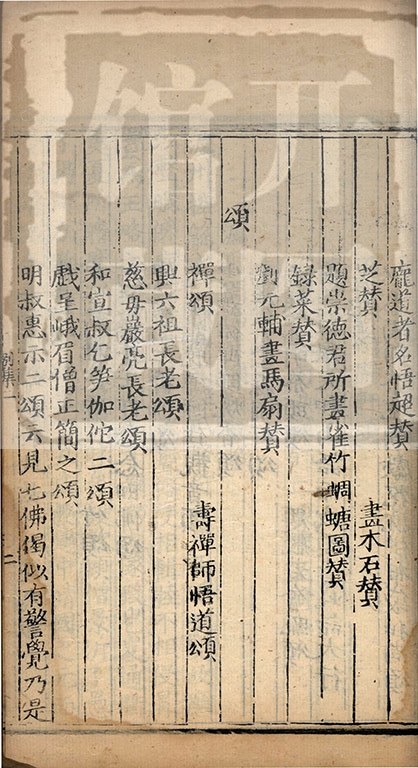 龐道者名悟超賛
芝賛 畫木石賛
題崇德君所畫雀竹蜩螗圖賛
録菜賛
劉元輔畫馬扇賛
頌
禪頌 壽禪師悟道頌
與六祖長老頌
慈母巖亮長老頌
和宣叔乞笋伽佗二頌
戲呈峨眉僧正簡之頌
明叔惠示二頌云見七佛偈似有警覺乃是
別集一
二